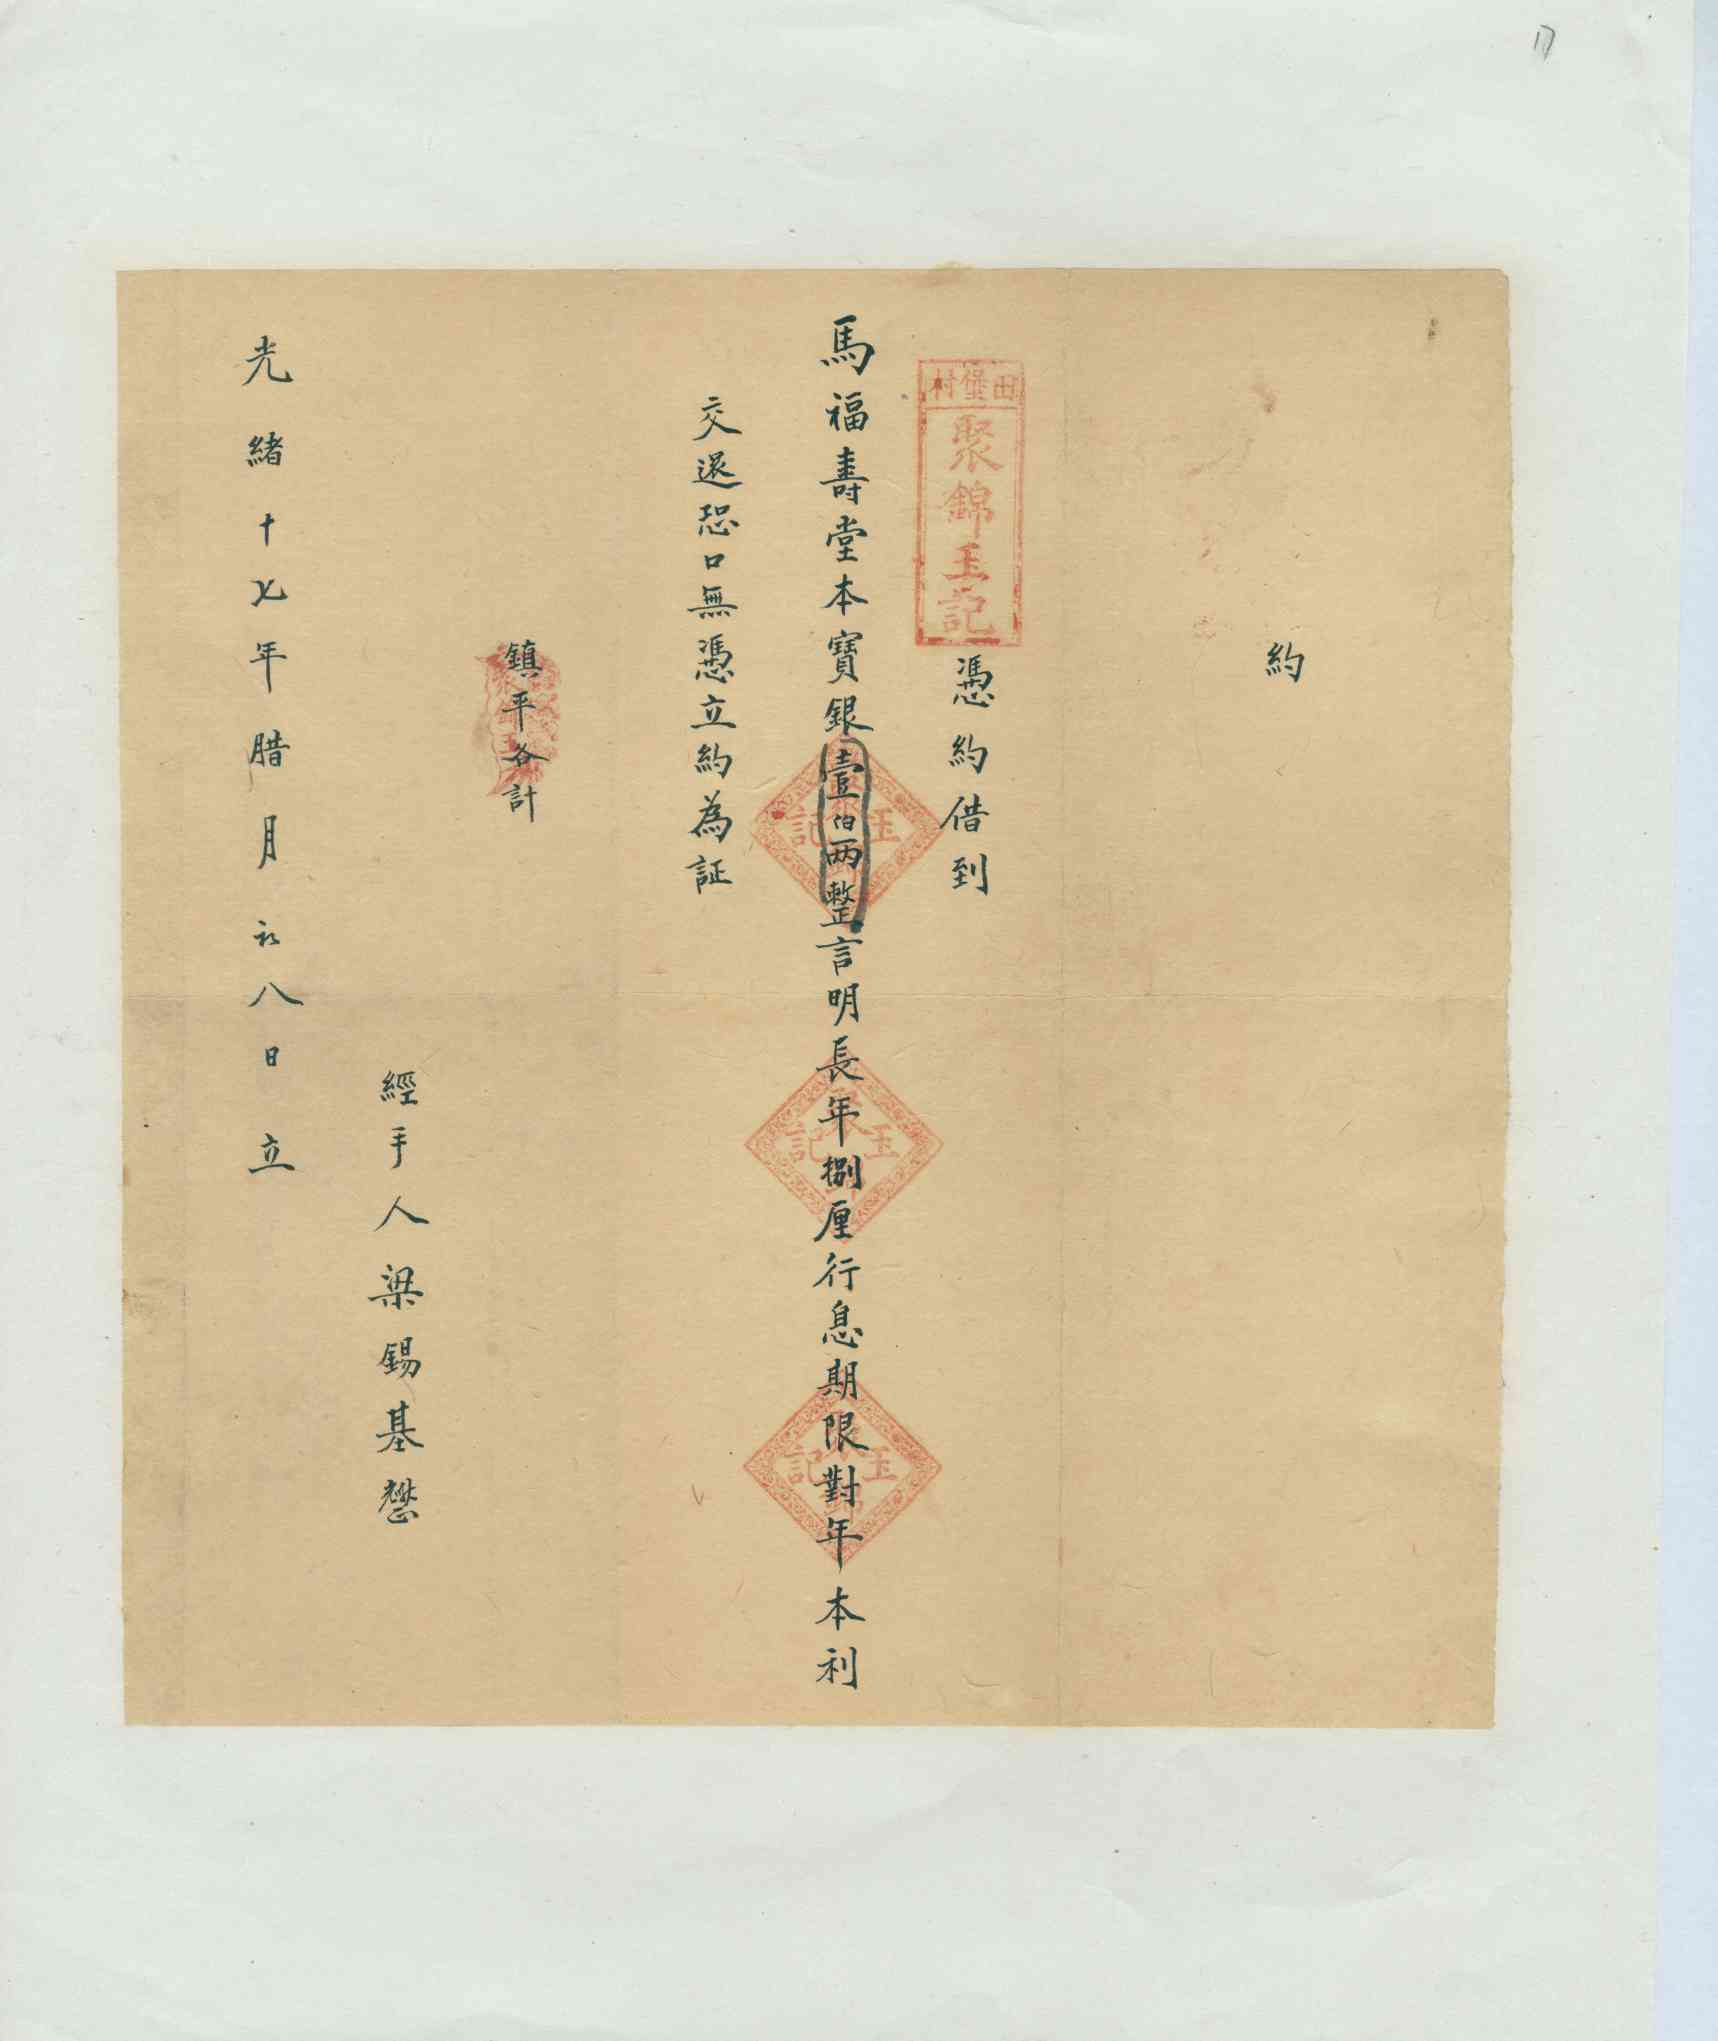 17
約
田堡村
聚錦玉記
憑約借到
馬福壽堂本寶銀壹佰两整言明長年捌厘行息期限對年本利
聚錦玉記
聚錦玉記
聚錦玉記
交還恐口無憑立約為証
鎮平各計
經手人梁錫基
光緒十七年腊月初八日立